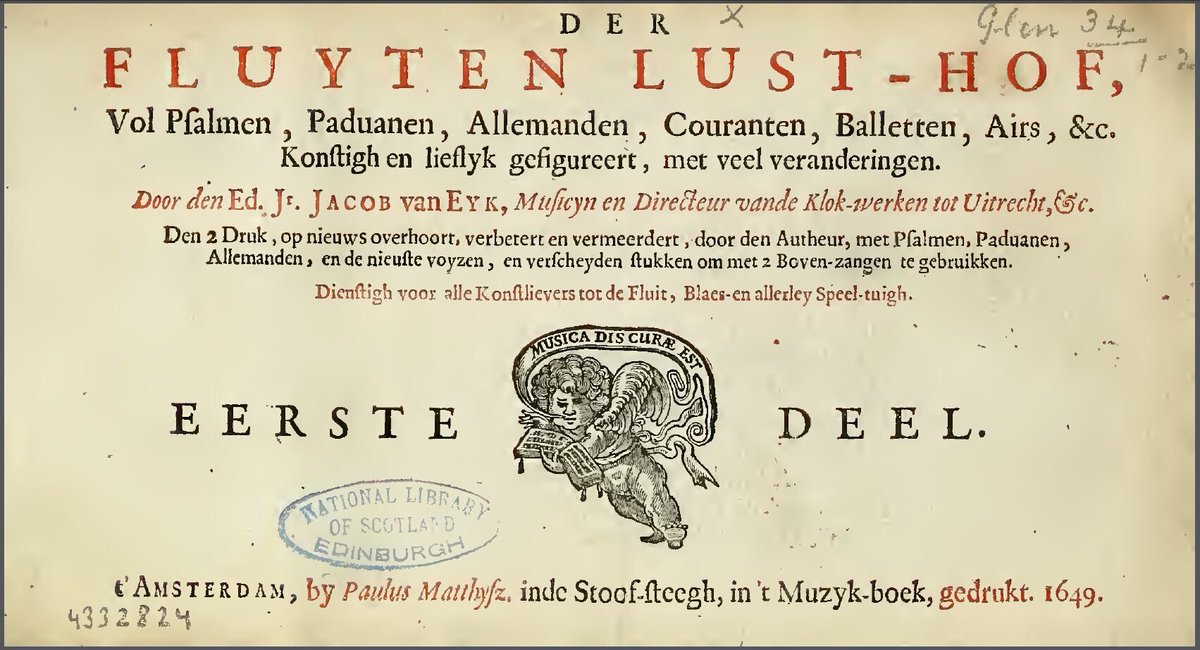 DER X Glen 34
FLUYTEN LUST-HOF, 1-2
Vol Pſalmen, Paduanen, Allemanden, Couranten, Balletten, Airs, &c.
Konſtigh en lieflyk gefigureert, met veel veranderingen.
Door den Ed. Jr. JACOB van EYK, Muſicyn en Directeur vande Klok-werken tot Uitrecht, &c.
Den 2 Druk, op nieuws overhoort, verbetert en vermeerdert, door den Autheur, met Pſalmen, Paduanen,
Allemanden, en de nieuſte voyzen, en verſcheyden ſtukken om met 2 Boven-zangen te gebruikken.
Dienſtigh voor alle Konſtlievers tot de Fluit, Blaes-en allerley Speel-tuigh.
MUSICA DIS CURÆ EST
EERSTE DEEL.
NATIONAL LIBRARY
OF SCOTLAND
EDINBURGH
t'AMSTERDAM, by Paulus Matthyſz. inde Stoof-ſteegh, in 't Muzyk-boek, gedrukt. 1649.
4332824